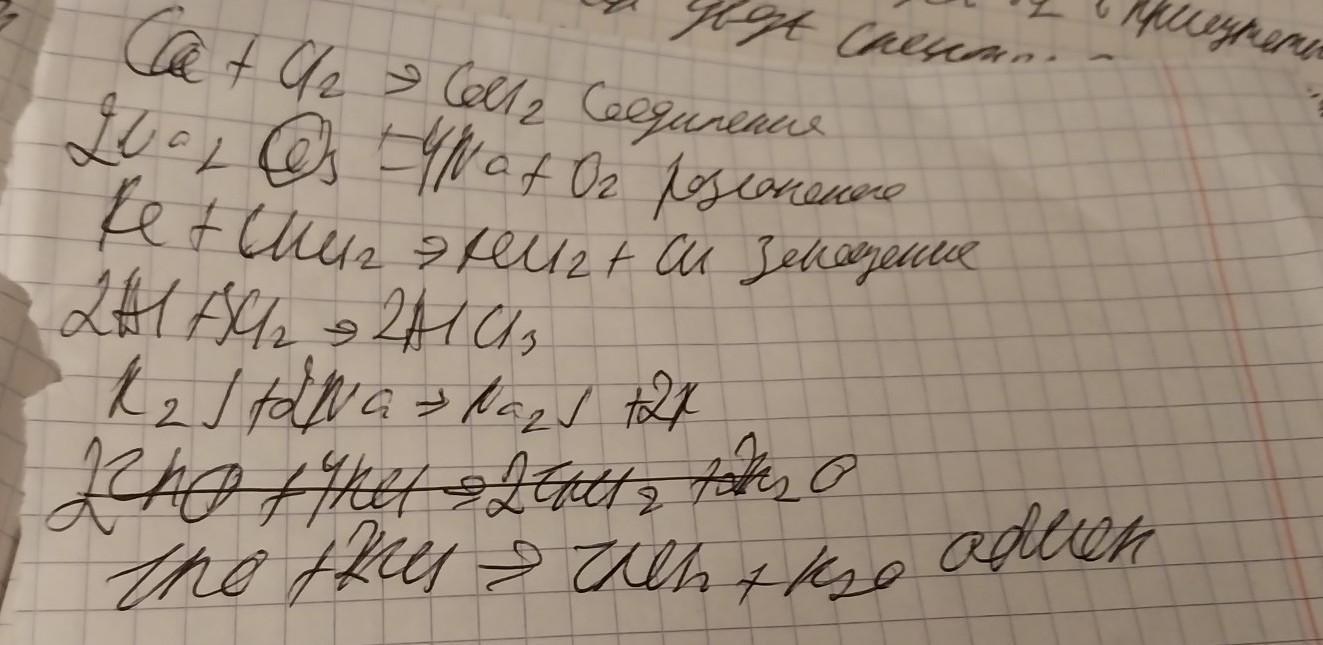 Ca + Cl₂ → CaCl₂ Соединения
= 4Na + O₂ разложение
Fe + CuCl₂ → FeCl₂ + Cu Замещение
2Al + 3Cl₂ → 2AlCl₃
K₂S + 2Na → Na₂S + 2K
2ZnO + 4HCl → 2ZnCl₂ + 2H₂O
ZnO + 2HCl → ZnCl₂ + H₂O обмен